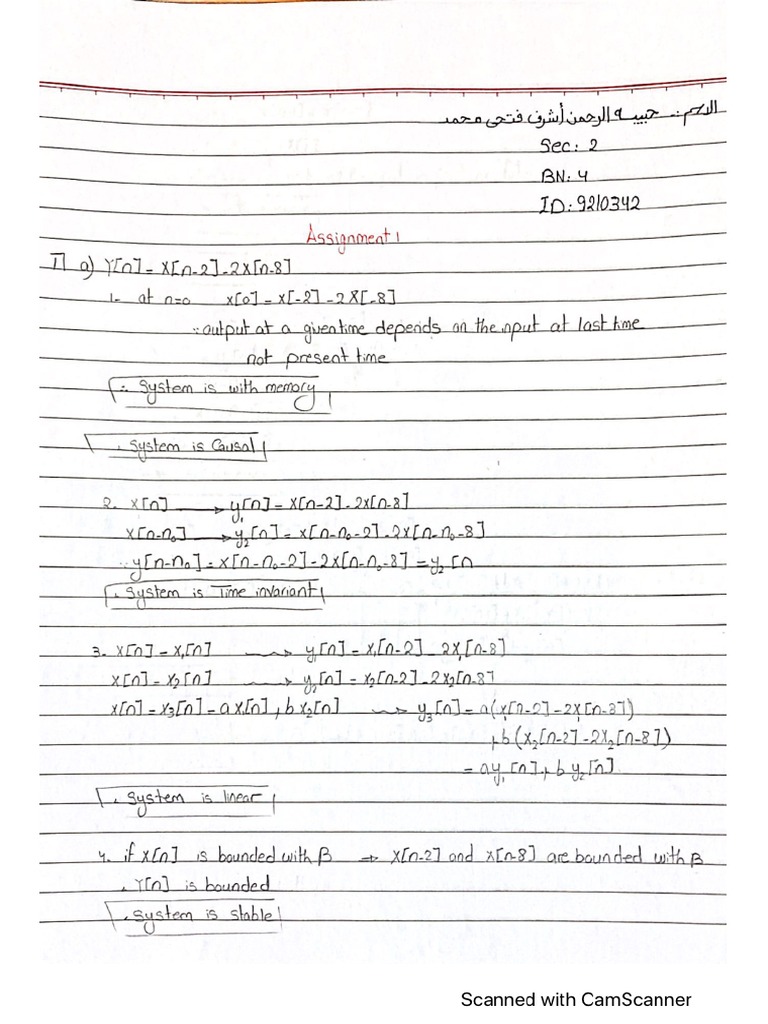 الاسم :- حبيبة الرحمن أشرف فتحى محمد
Sec: 2
BN: 4
ID: 9210342
Assignment 1
I] a) Y[n] = X[n-2] - 2X[n-8]
1- at n=0 x[0] = x[-2] - 2X[-8]
∵ output at a given time depends on the input at last time
not present time
∴ System is with memory
∴ System is Causal
2. x[n] → y₁[n] = x[n-2] - 2x[n-8]
x[n-n₀] → y₂[n] = x[n-n₀-2] - 2x[n-n₀-8]
∵ y[n-n₀] = x[n-n₀-2] - 2x[n-n₀-8] = y₂[n
∴ System is Time invariant
3. x[n] = x₁[n] → y₁[n] = x₁[n-2] - 2x₁[n-8]
x[n] = x₂[n] → y₂[n] = x₂[n-2] - 2x₂[n-8]
x[n] = x₃[n] = ax₁[n] + bx₂[n] → y₃[n] = a(x₁[n-2] - 2x₁[n-8])
+ b(x₂[n-2] - 2x₂[n-8])
= ay₁[n] + by₂[n]
∴ System is linear
4. if x[n] is bounded with B → x[n-2] and x[n-8] are bounded with B
∴ Y[n] is bounded
∴ System is stable
Scanned with CamScanner